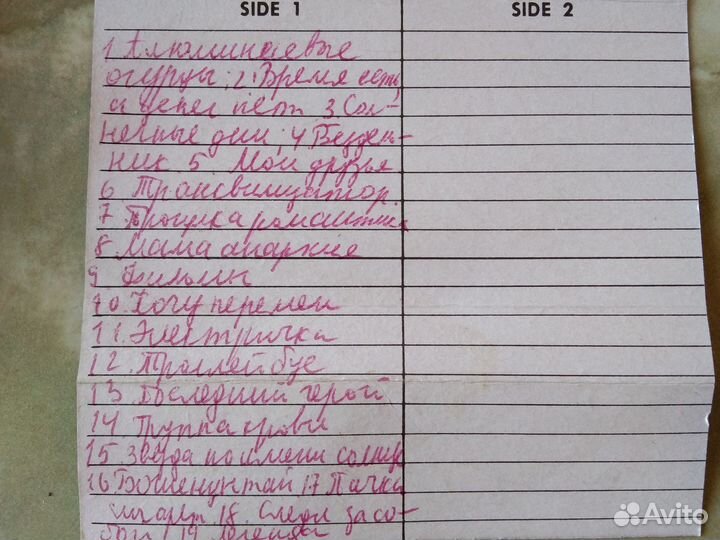 SIDE 1
SIDE 2
1 Алюминиевые
огурцы; 2. Время есть,
а денег нет 3 Сол-
нечные дни; 4 Бездель-
ник 5. Мои друзья
6 Транквилизатор.
7. Прогулка романтика
8 Мама анархие
9 Фильмы
10. Хочу перемен
11. Электричка
12. Троллейбус
13 Последний герой
14 Группа крови
15 Звезда по имени солнце
16 Бошетунмай 17 Пачка
сигарет 18. Следи за со-
бой 19 Легенда
Avito